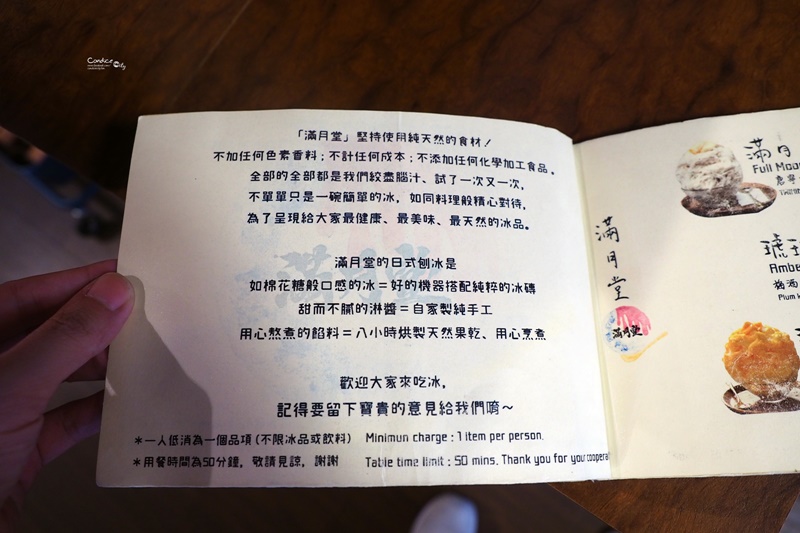 Candice
「滿月堂」堅持使用純天然的食材！
不加任何色素香料；不計任何成本；不添加任何化學加工食品。
全部的全部都是我們絞盡腦汁、試了一次又一次，
不單單只是一碗簡單的冰，如同料理般精心對待，
為了呈現給大家最健康、最美味、最天然的冰品。
滿月堂的日式刨冰是
如棉花糖般口感的冰＝好的機器搭配純粹的冰磚
甜而不膩的淋醬＝自家製純手工
用心熬煮的餡料＝八小時烘製天然果乾、用心烹煮
歡迎大家來吃冰，
記得要留下寶貴的意見給我們唷～
＊一人低消為一個品項（不限冰品或飲料） Minimun charge : 1 item per person.
＊用餐時間為50分鐘，敬請見諒，謝謝 Table time limit : 50 mins. Thank you for your coopera
滿月堂
滿月堂
滿月
Full Moo
Ambe
梅酒
Plum